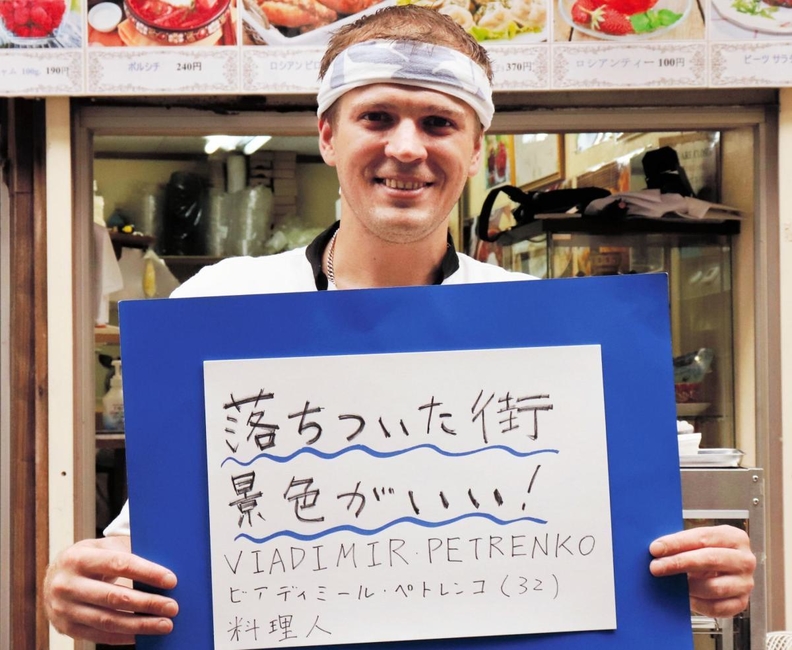 190円
ボルシチ 240円
370円
ロシアンティー 100円
落ちついた街
景色がいい!
VIADIMIR・PETRENKO
ビアディミール・ペトレンコ(32)
料理人